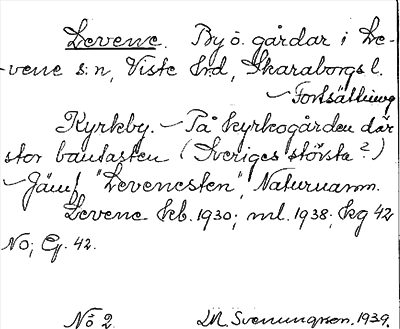 Levene. By o. gårdar i Le-
-vene s:n, Viste hrd, Skaraborgs l.
- Fortsättning
Kyrkby. - På kyrkogården där
stor bautasten (Sveriges största?)
- Jämf. "Levenesten", Naturnamn.
Levene kb. 1930; ml. 1938; kg 42
No; Eg. 42.
No 2. M. Svenungsson. 1939.